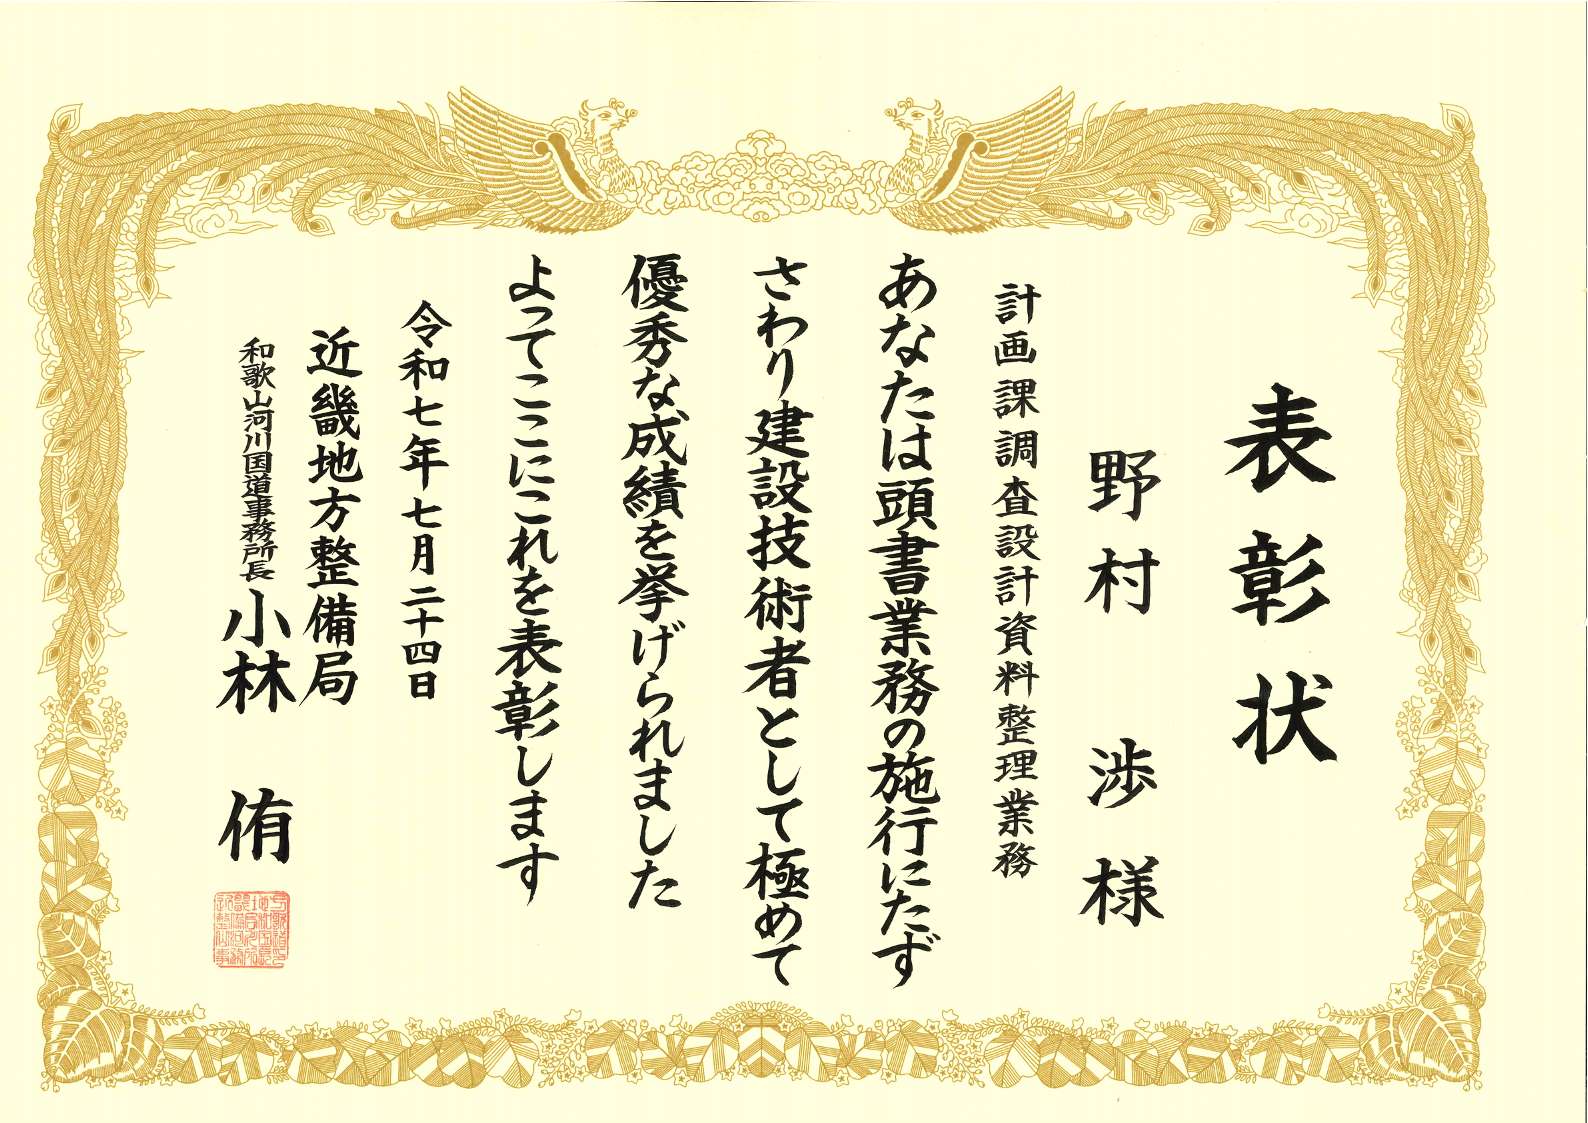 表彰状
野村 渉 様
計画課調査設計資料整理業務
あなたは頭書業務の施行にたず
さわり建設技術者として極めて
優秀な成績を挙げられました
よってここにこれを表彰します
令和七年七月二十四日
近畿地方整備局
和歌山河川国道事務所長 小林 侑